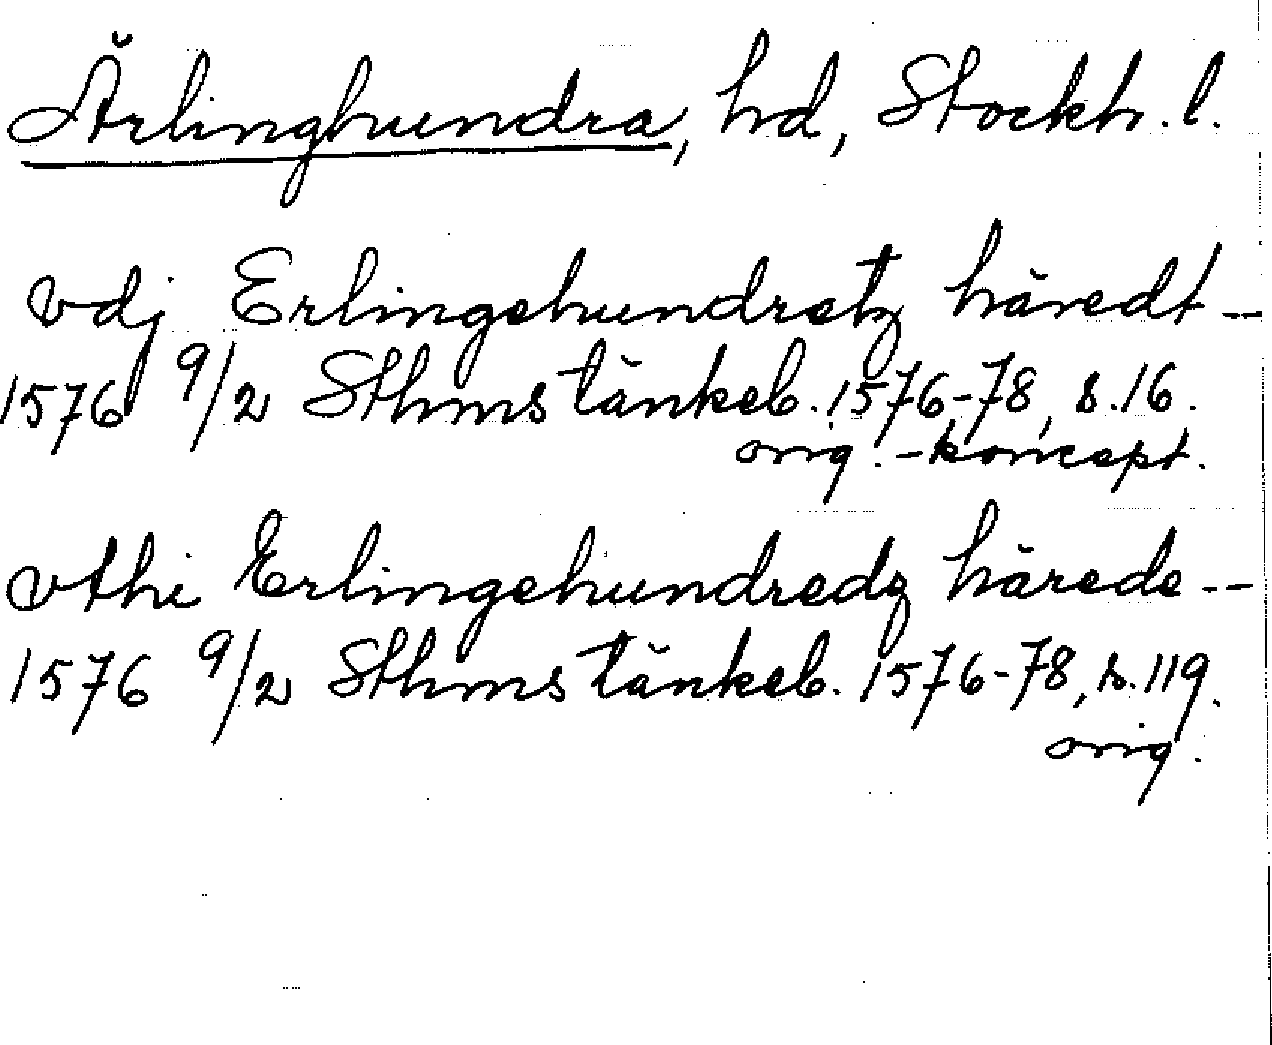 Ärlinghundra, hd, Stockh. l.
vdj Erlingehundretz häredt --
1576 9/2 Sthms tänkeb. 1576-78, s. 16.
orig. - koncept.
vthi Erlingehundredz härede --
1576 9/2 Sthms tänkeb. 1576-78, s. 119.
orig.